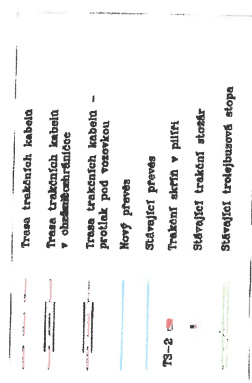 Trasa trakčních kabelů
Trasa trakčních kabelů
v
Trasa trakčních kabelů -
protlak pod vozovkou
Nový převěs
Stávající převěs
TS-2 Trakční skříň v pilíři
Stávající trakční stožár
Stávající trolejbusová stopa